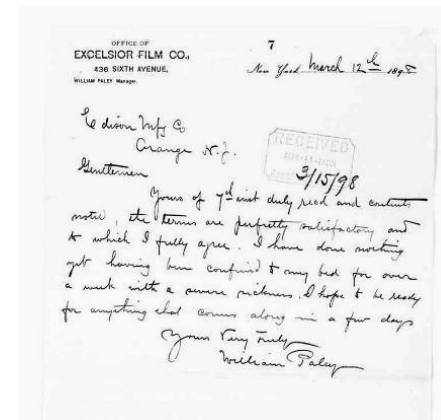 OFFICE OF
EXCELSIOR FILM CO.,
436 SIXTH AVENUE,
WILLIAM PALEY Manager.
7
New York March 12th 1898
Edison Mfg Co
Orange N.J.
RECEIVED
3/15/98
Gentlemen
Yours of 7th inst duly recd and contents
noted, the terms are perfectly satisfactory and
to which I fully agree. I have done nothing
yet having been confined to my bed for over
a week with a severe sickness. I hope to be ready
for anything that comes along in a few days
Yours Very Truly
William Paley